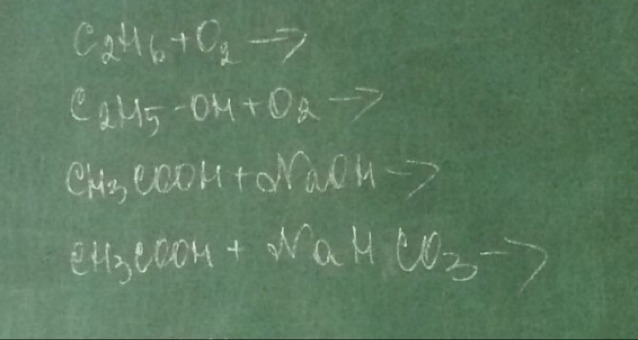 C₂H₆ + O₂ →
C₂H₅-OH + O₂ →
CH₃COOH + NaOH →
CH₃COOH + NaHCO₃ →